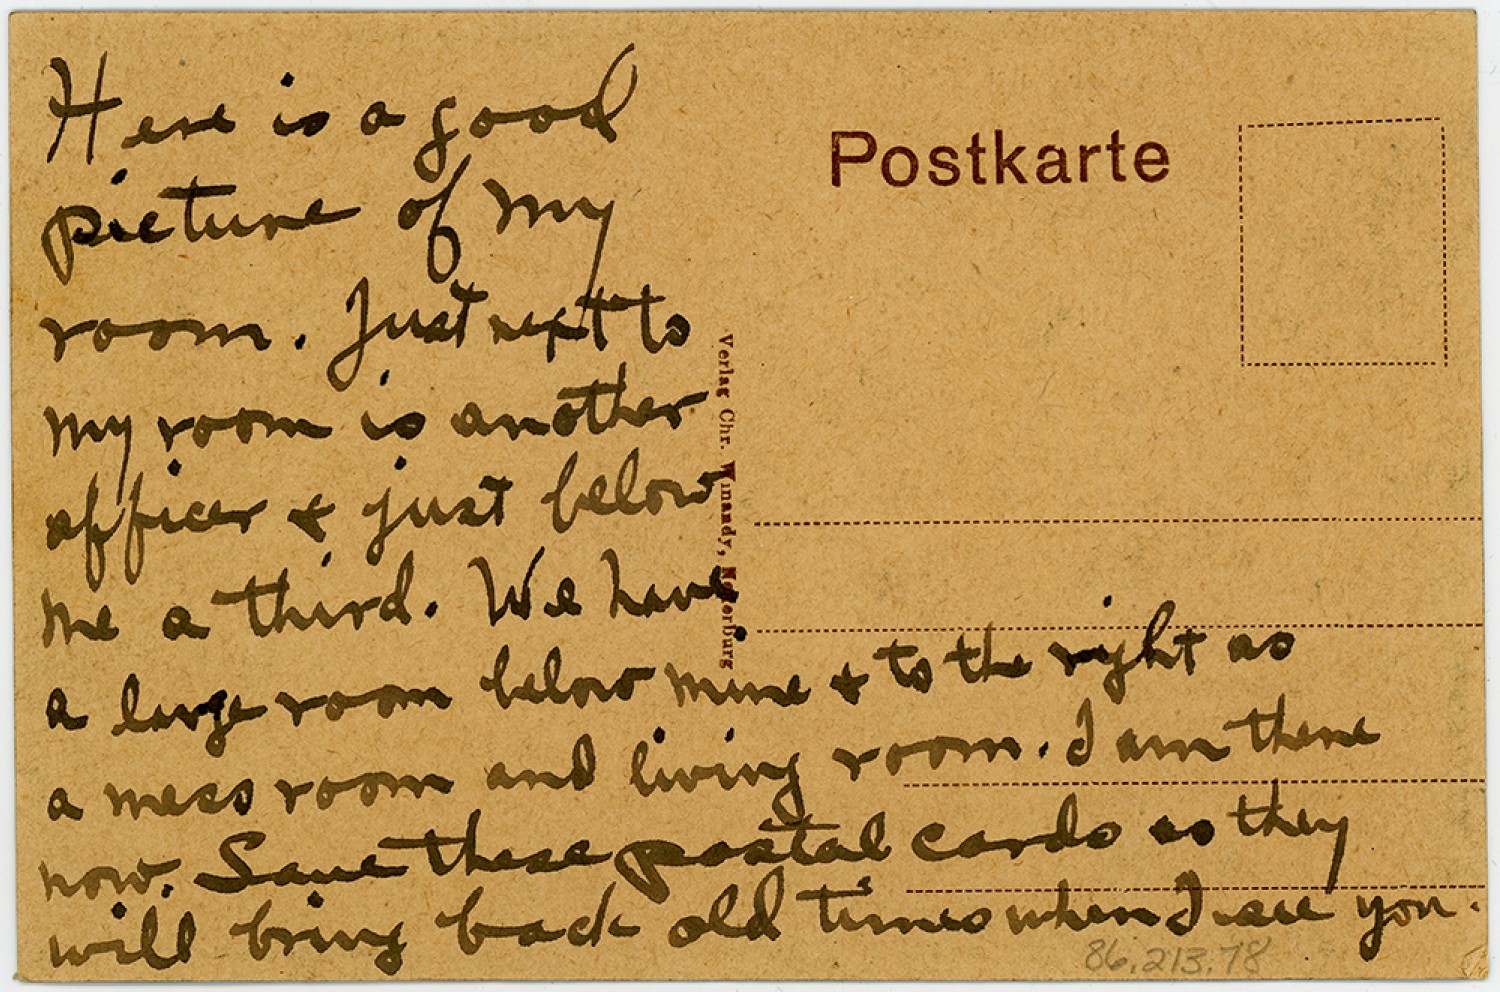 Here is a good
picture of my
room. Just next to
my room is another
officer & just below
me a third. We have
a large room below mine & to the right as
a mess room and living room. I am there
now. Save these postal cards as they
will bring back old times when I see you.
Postkarte
Verlag Chr. Winandy,
86.213.78